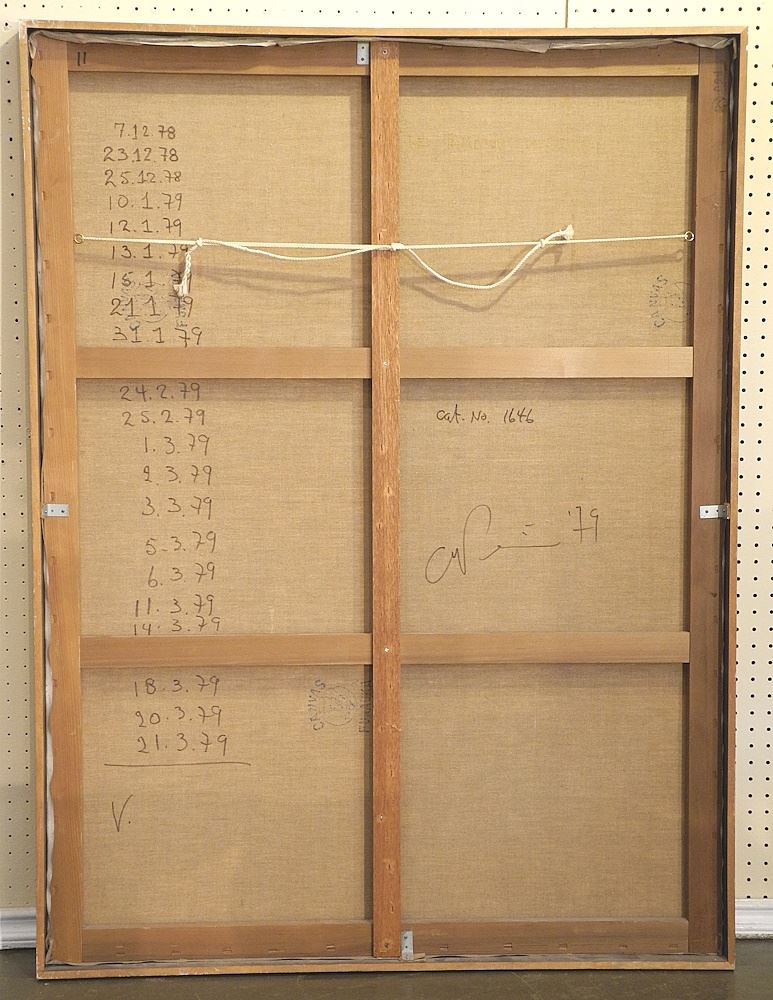 11
7.12.78
23.12.78
25.12.78
10.1.79
12.1.79
13.1.79
15.1.
21 1 79
31 1 79
24.2.79
25.2.79
1.3.79
2.3.79
3.3.79
5.3.79
6.3.79
11.3.79
14.3.79
18.3.79
20.3.79
21.3.79
V.
CANVAS
Cat. No. 1646
'79
CANVAS